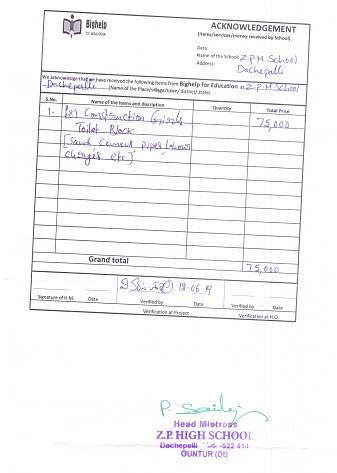 Bighelp
for education
ACKNOWLEDGEMENT
(Items/services/money received by School)
Date:
Name of the School: Z.P.H School
Address: Dachepalli
We acknowledge that we have received the following items from Bighelp for Education at Z.P.H School
Dachepalli (Name of the Place/village/town/ district/state)
S.No. Name of the Items and discription Quantity Total Price
1- for Construction Girls 75,000
Toilet Block
[Sand cement pipes
charges etc]
Grand total 75,000
18-06-19
Signature of H.M. Date Verified by Date Verified by Date
Verification at Project Verification at H.O.
Head Mistress
Z.P. HIGH SCHOOL
Dachepalli -522 414
GUNTUR (Dt)